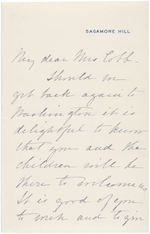 SAGAMORE HILL
My dear Mrs Cobb.
Should we
get back again to
Washington it is
delightful to know
that you and the
children will be
there to welcome us.
It is good of you
to wish and to you